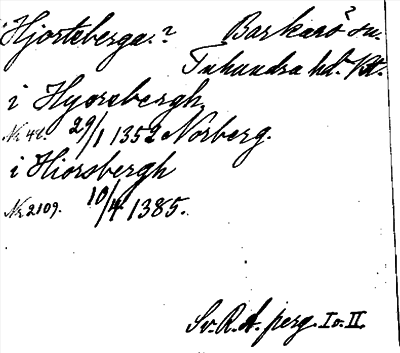 Hjortsberga? Barkarö sn.
Tuhundra hd. Vstm.
i Hyorsbergh,
Nr 42. 29/1 1352 Norberg.
i Hiorsbergh
Nr 2109. 10/4 1385.
Sv. R. A. perg. I o. II.